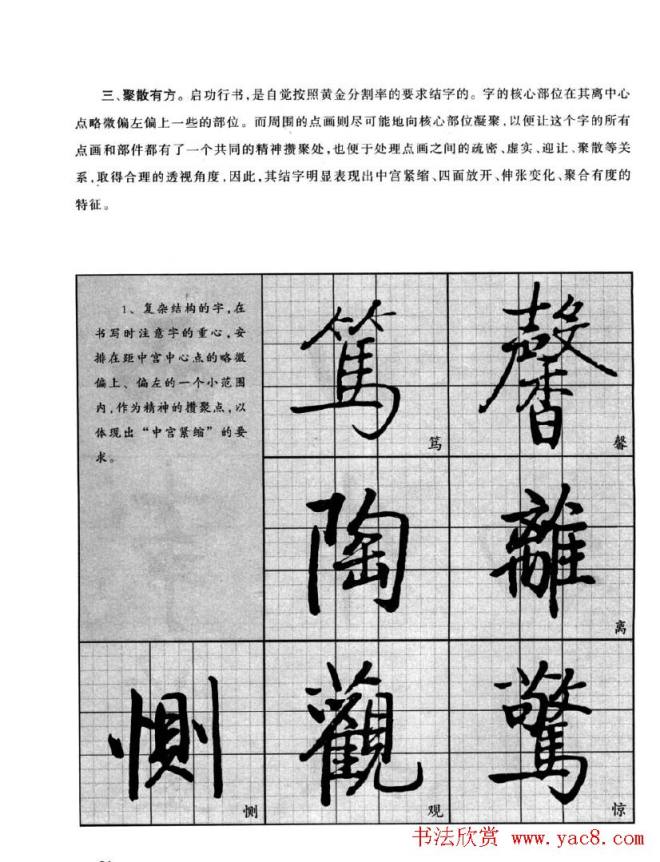 三、聚散有方。启功行书,是自觉按照黄金分割率的要求结字的。字的核心部位在其离中心
点略微偏左偏上一些的部位。而周围的点画则尽可能地向核心部位凝聚,以便让这个字的所有
点画和部件都有了一个共同的精神攒聚处,也便于处理点画之间的疏密、虚实、迎让、聚散等关
系,取得合理的透视角度,因此,其结字明显表现出中宫紧缩、四面放开、伸张变化、聚合有度的
特征。
1、复杂结构的字,在
书写时注意字的重心,安
排在距中宫中心点的略微
偏上、偏左的一个小范围
内,作为精神的攒聚点,以
体现出“中宫紧缩”的要
求。
篤
笃
馨
馨
陶
離
离
惻
恻
觀
观
驚
惊
书法欣赏 www.yac8.com